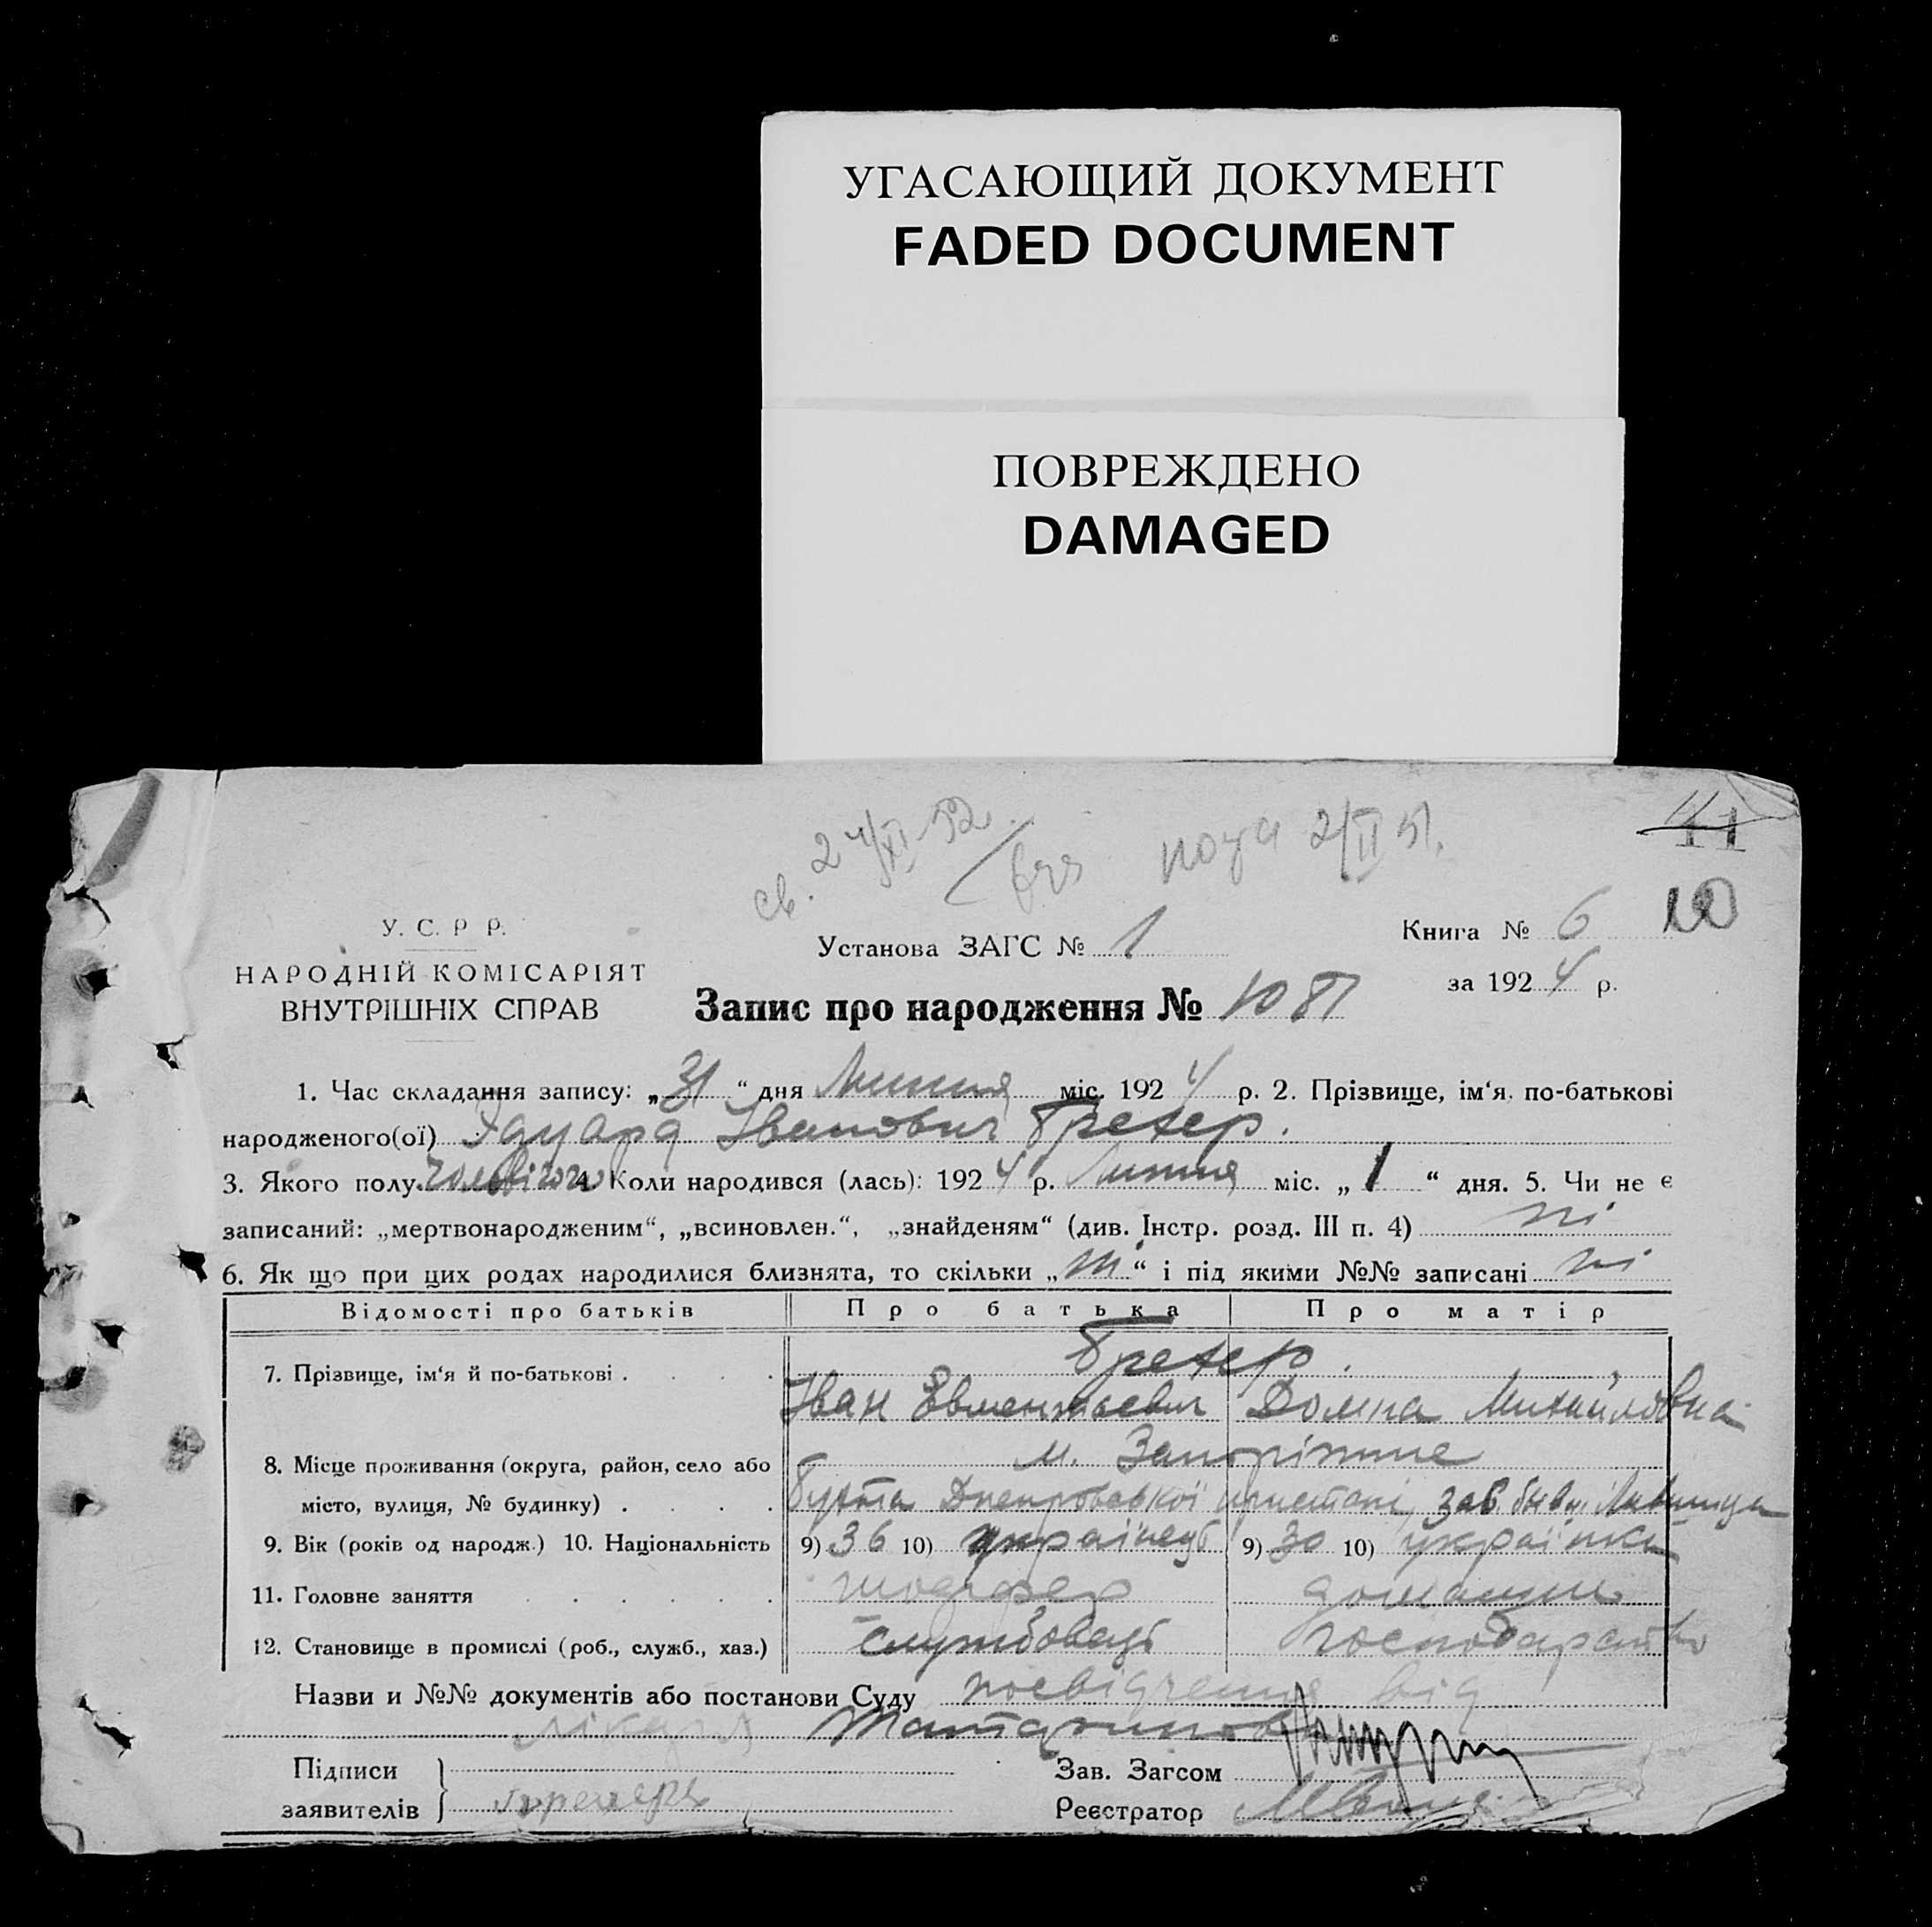 УГАСАЮЩИЙ ДОКУМЕНТ
FADED DOCUMENT
ПОВРЕЖДЕНО
DAMAGED
св. 24/XI-52.
2/II 51.
11
У. С. Р Р.
НАРОДНІЙ КОМІСАРІЯТ
ВНУТРІШНІХ СПРАВ
Установа ЗАГС № 1
Книга № 6
за 1924 р.
Запис про народження №
1. Час складання запису: „31“ дня Липня міс. 1924 р. 2. Прізвище, ім‘я, по-батькові
народженого(ої) Едуард Іванович Грехер.
3. Якого полу чоловічого 4. Коли народився (лась): 1924 р. Липня міс. „1“ дня. 5. Чи не є
записаний: „мертвонародженим“, „всиновлен.“, „знайденям“ (див. Інстр. розд. III п. 4) ні
6. Як що при цих родах народилися близнята, то скільки „ні“ і під якими №№ записані ні
Відомості про батьків Про батька Про матір
7. Прізвище, ім‘я й по-батькові . . . . Грехер.
Іван Евментьевич Домна Михайловна
м. Запоріжжє
8. Місце проживання (округа, район, село або
місто, вулиця, № будинку) . . . . бухта Днепровської пристані, зав. бывш.
9. Вік (років од народж.) 10. Національність 9) 36 10) українець 9) 30 10) українка
11. Головне заняття . . . . . . шофер домашнє
12. Становище в промислі (роб., служб., хаз.) службовець господарство
Назви и №№ документів або постанови Суду посвідчення від
лікаря
Підписи
заявителів
Зав. Загсом
Реєстратор